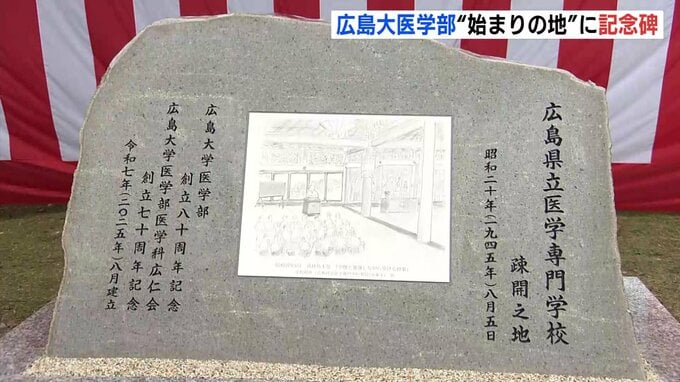 広島大医学部“始まりの地”に記念碑
広島県立医学専門学校
疎開之地
昭和二十年(一九四五年)八月五日
広島大学医学部
創立八十周年記念
広島大学医学部医学科広仁会
創立七十周年記念
令和七年(二〇二五年)八月建立